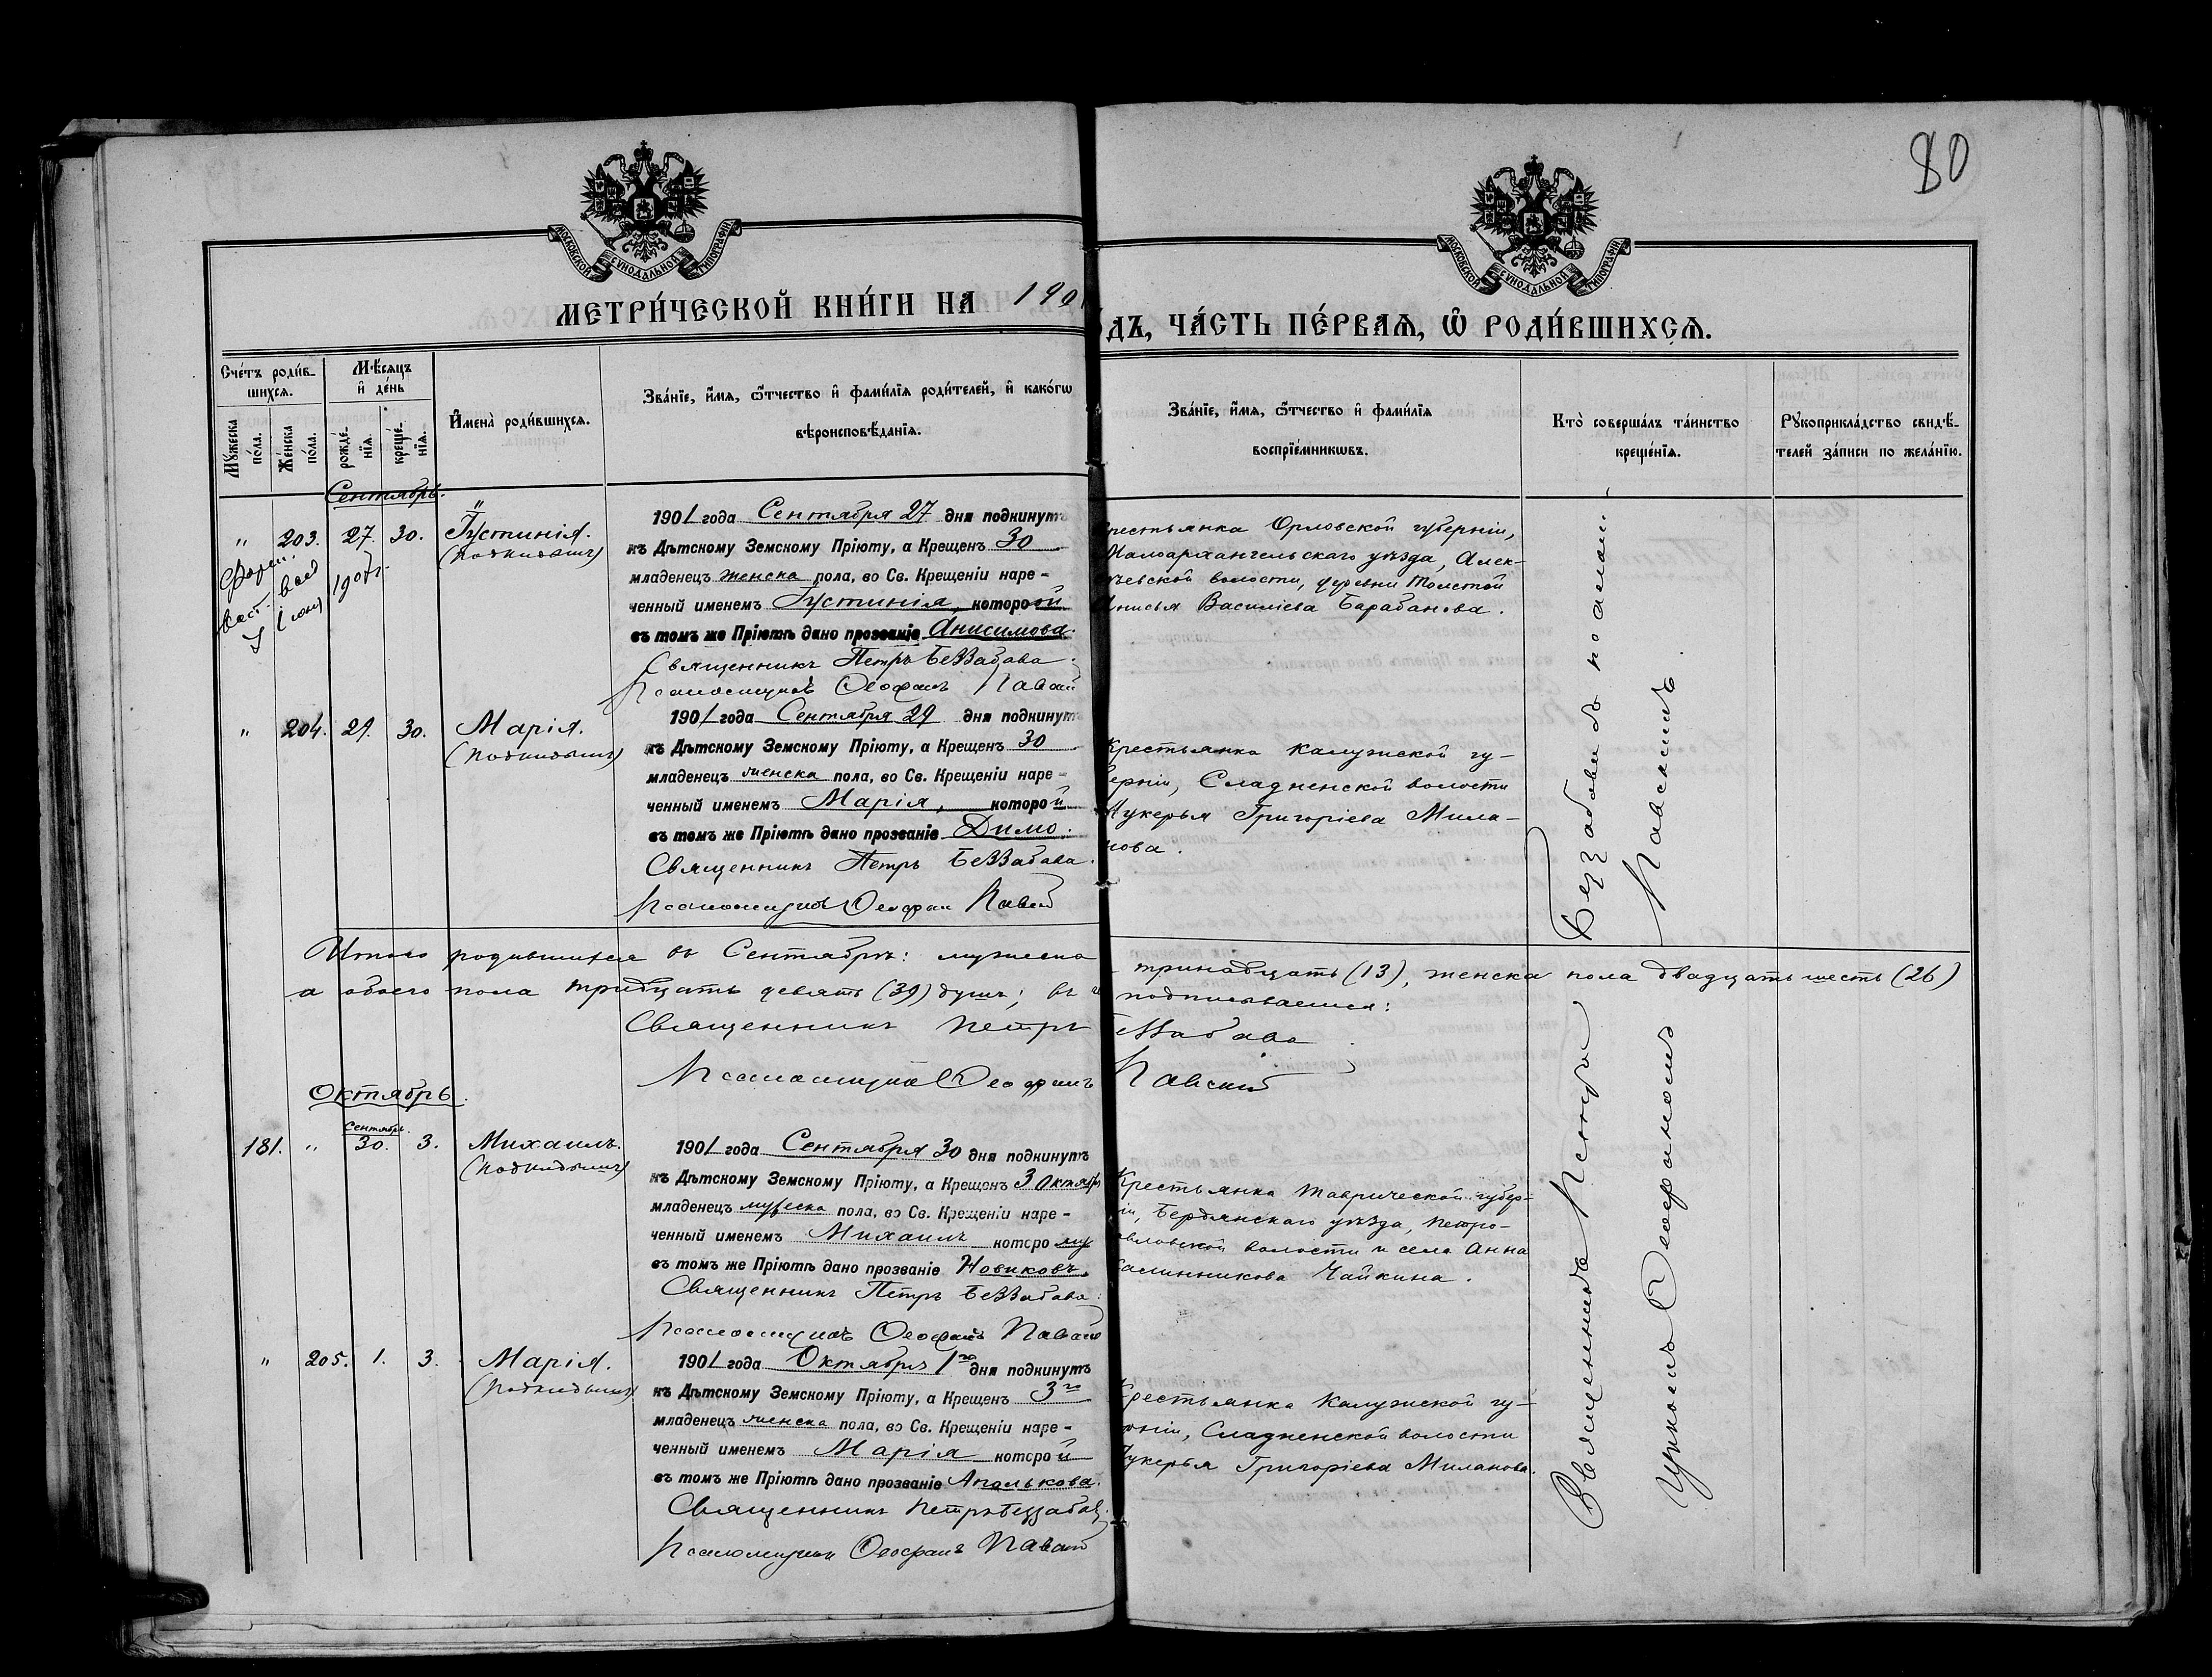 80
МОСКОВСКОЙ СѴНОДАЛЬНОЙ ТИПОГРАФІИ.
МОСКОВСКОЙ СѴНОДАЛЬНОЙ ТИПОГРАФІИ.
МЕТРИ́ЧЕСКОЙ КНИ́ГИ НА 190
ДЪ, ЧА́СТЬ ПЕ́РВАѦ, Ѡ҆ РОДИ́ВШИХСѦ.
Сче́тъ роди́в-
шихсѧ.
Мꙋ́жеска по́ла.
Же́нска по́ла.
Мѣ́сѧцъ и҆ де́нь
рожде́-
нїѧ.
креще́-
нїѧ.
И҆мена̀ роди́вшихсѧ.
Зва́нїе, и҆́мѧ, ѻ҆́тчество и҆ фами́лїѧ роди́телей, и҆ како́гѡ
вѣроисповѣ́данїѧ.
Зва́нїе, и҆́мѧ, ѻ҆́тчество и҆ фами́лїѧ
воспрїе́мникѡвъ.
Кто̀ соверша́лъ та́инство
креще́нїѧ.
Рꙋкоприкла́дство свидѣ́-
телей за́писи по жела́нїю.
Сентябрь.
" 203. 27. 30. Іустинія.
(Подкидышъ)
1901 года Сентября 27 дня подкинутъ
къ Дѣтскому Земскому Пріюту, а Крещенъ 30
младенецъ женска пола, во Св. Крещеніи наре-
ченный именемъ Іустинія, которой
въ томъ же Пріютѣ дано прозваніе Анисимова.
Священникъ Петръ Беззабава.
Псаломщикъ Ѳеофанъ
рестьянка Орловской губерніи,
Малоархангельскаго уѣзда, Алек-
ѣевской волости, деревни Толстой
нисья Василіева Барабанова.
" 204. 29. 30. Марія.
(Подкидышъ)
1901 года Сентября 29 дня подкинутъ
къ Дѣтскому Земскому Пріюту, а Крещенъ 30
младенецъ женска пола, во Св. Крещеніи наре-
ченный именемъ Марія, которой
въ томъ же Пріютѣ дано прозваніе Димо.
Священникъ Петръ Беззабава.
Псаломщикъ Ѳеофан
Крестьянка Калужской гу-
ерніи, Сладненской волости
Лукерья Григоріева Мила-
нова.
Итого родившихся въ Сентябрѣ: мужеска
тринадцать (13), женска пола двадцать шесть (26)
а обоего пола тридцать девять (39) душъ; въ
подписываемся:
Священникъ Петръ
еззабава
Псаломщикъ Ѳеофанъ
Павскій
Октябрь.
Сентябрь.
181. " 30. 3. Михаилъ.
(Подкидышъ)
1901 года Сентября 30 дня подкинутъ
къ Дѣтскому Земскому Пріюту, а Крещенъ 3 Октяб
младенецъ мужеска пола, во Св. Крещеніи наре-
ченный именемъ Михаилъ которому
въ томъ же Пріютѣ дано прозваніе Новиковъ.
Священникъ Петръ Беззабава.
Псаломщикъ Ѳеофанъ
Крестьянка Таврической губер-
іи, Бердянскаго уѣзда, Петро-
авловской волости и села Анна
Калинникова Чайкина.
" 205. 1. 3. Марія.
(Подкидышъ)
1901 года Октября 1го дня подкинутъ
къ Дѣтскому Земскому Пріюту, а Крещенъ 3го
младенецъ женска пола, во Св. Крещеніи наре-
ченный именемъ Марія которой
въ томъ же Пріютѣ дано прозваніе Аполькова.
Священникъ Петръ Беззабава.
Псаломщикъ Ѳеофанъ
рестьянка Калужской гу-
рніи, Сладненской волости
укерья Григоріева Миланова.
Священникъ Петръ Беззабава съ псалом-
щикомъ Ѳеофаномъ Павскимъ.